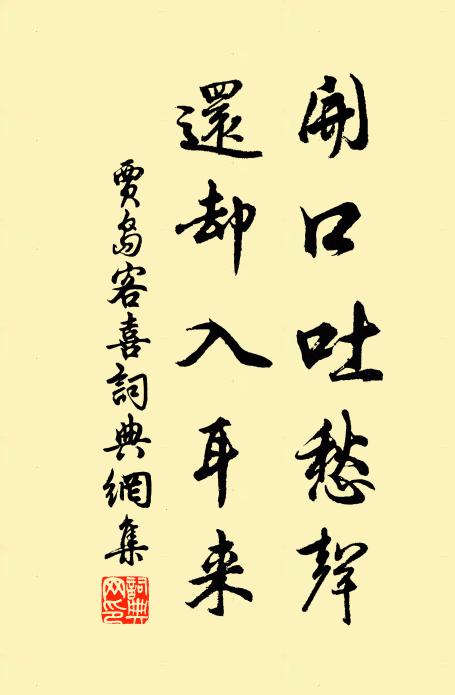 開口吐愁聲
還却入耳来
賈島客喜詞典網集
詞典网印